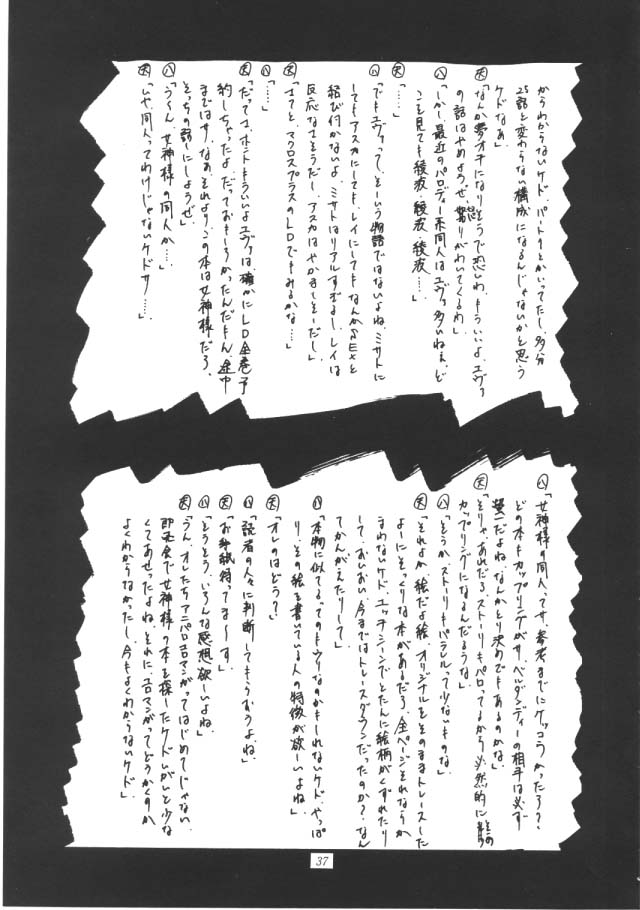 からわからないケド、パート9とかいってたし、多分
25話と変わらない構成になるんじゃないかと思う
ケドなあ」
「なんか夢オチになりそうで恐いわ、もういいよ、エヴァ
の話はやめようぜ、怒りがわいてくるわ」
八「しかし最近のパロディー系同人はエヴァ多いねぇ、ど
こを見ても綾波、綾波、綾波……」
「……」
八「でもエヴァって、そーいう物語ではないよね、ミサトに
してもアスカにしても、レイにしてもなんかSEXと
結び付かないよ、ミサトはリアルすぎるし、レイは
反応なさそうだし、アスカはやかましそーだし」
「さてと、マクロスプラスのLDでもみるかな…」
八「……」
「だってさ、ホントもういいよエヴァは、確かにLD全巻予
約しちゃったよ、だっておもしろかったんだもん、途中
まではサ、なあ、それよりこの本は女神様だろ、
そっちの話にしようぜ」
八「う～ん、女神様の同人か…」
「いや同人ってわけじゃないケドサ……」
八「女神様の同人ってサ、参考までにケッコウかったろ?
どの本もカップリングがサ、ベルダンディーの相手は必ず
螢一だよね、なんかとり決めでもあるのかな」
「そりゃあれだろ、ストーリーもパロってるから必然的に
カップリングになるんだろうな」
八「そうか、ストーリーもパラレルって少ないものな」
「それよか絵だよ絵、オリジナルをそのままトレースした
よーにそっくりな本があるだろ、全ページそれならか
まわないケド、エッチシーンでとたんに絵柄がくずれたり
して、おいおい、今まではトレースダウンだったのか?なん
てかんがえたりして」
八「本物に似てるってのもウリなのかもしれないケド、やっぱ
り、その絵を書いている人の特徴が欲しいよね」
「オレのはどう?」
八「読者の人々に判断してもらおうよね」
「お手紙待ってま～す」
八「そうそう、いろんな感想欲しいよね」
「うん、オレたちアニパロエロマンガってはじめてじゃない、
即売会で女神様の本を探したケドいがいと少な
くてあせったよね、それにエロマンガってどうかくのか
よくわからなかったし、今もよくわからないケド」
37